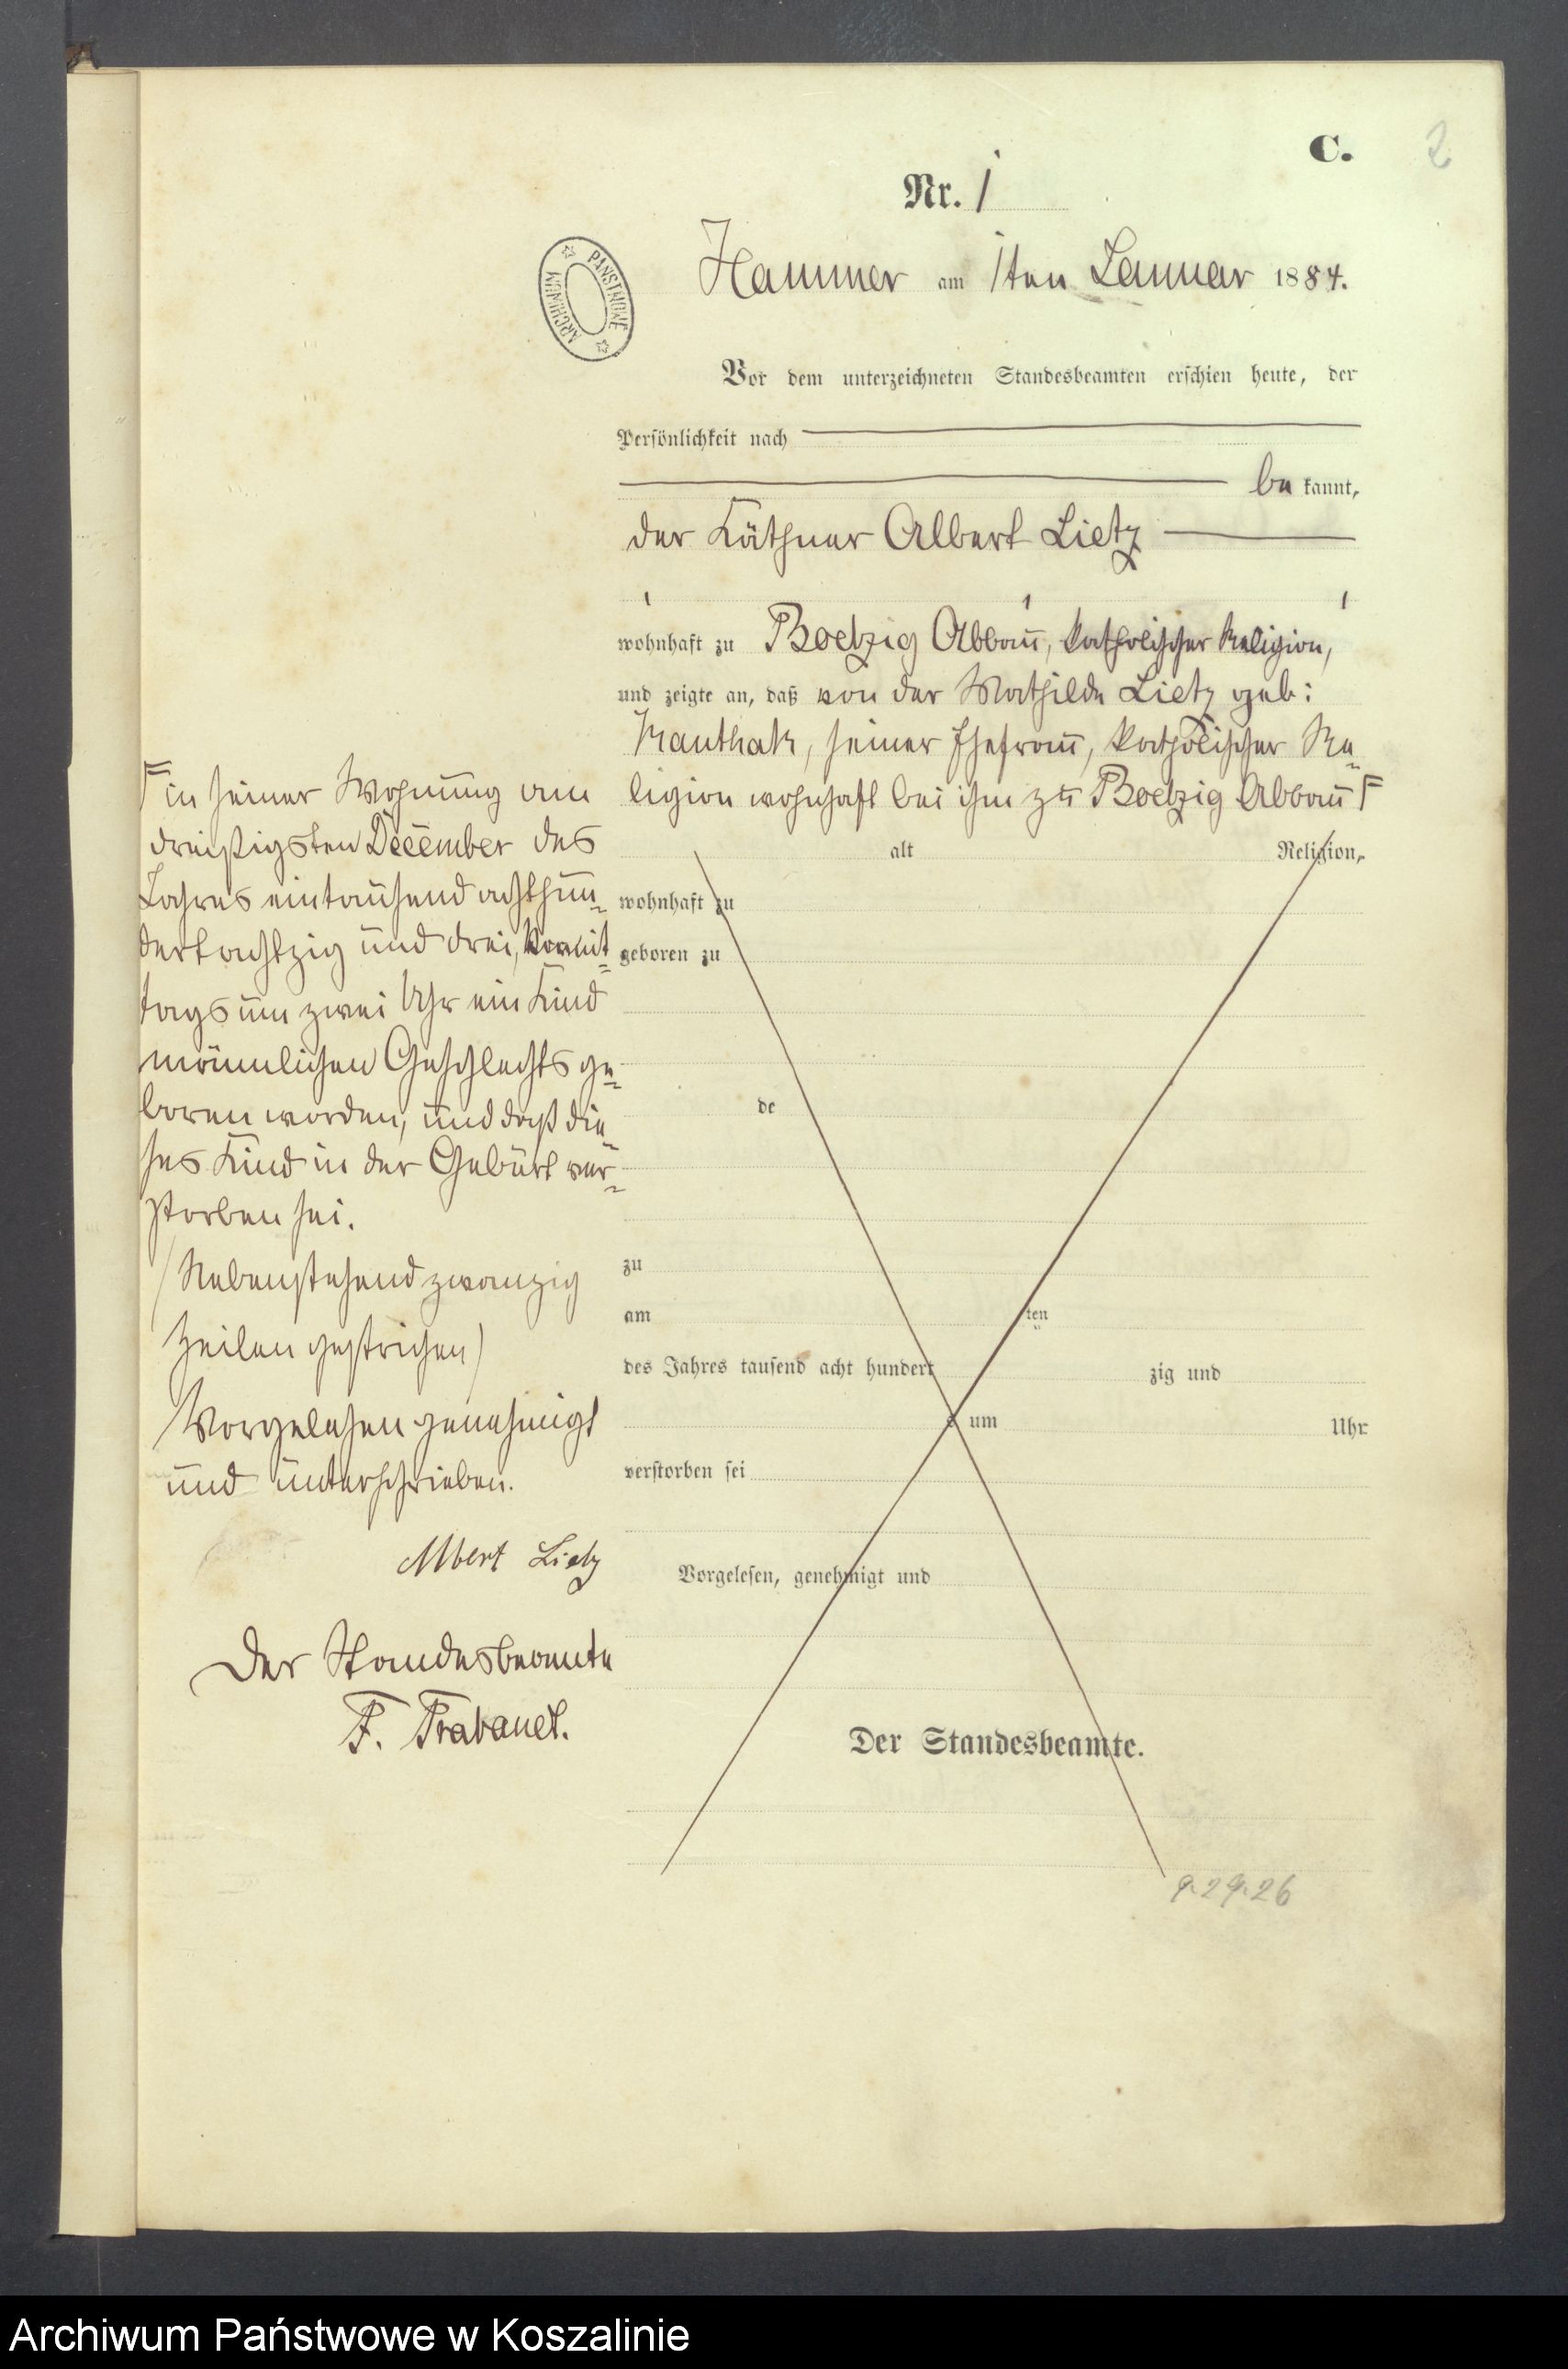 C.
2
Nr. 1
Hammer am 1ten Januar 1884.
Vor dem unterzeichneten Standesbeamten erschien heute, der
Persönlichkeit nach
be kannt,
der Käthner Albert Lietz
wohnhaft zu Boelzig Abbau, katholischer Religion,
und zeigte an, daß von der Mathilde Lietz geb:
Kauthak, seiner Ehefrau, katholischer Re-
ligion wohnhaft bei ihm zu Boelzig Abbau F
F in seiner Wohnung am
dreißigsten December des
Jahres eintausend achthun-
dert achtzig und drei, Vormit-
tags um zwei Uhr ein Kind
männlichen Geschlechts ge-
boren worden, und daß die-
ses Kind in der Geburt ver-
storben sei.
(Nebenstehend zwanzig
Zeilen gestrichen)
Vorgelesen genehmigt
und unterschrieben.
Albert Lietz
Der Standesbeamte
F. Trabandt.
alt Religion,
wohnhaft zu
geboren zu
de
zu
am ten
des Jahres tausend acht hundert zig und
um Uhr
verstorben sei
Vorgelesen, genehmigt und
Der Standesbeamte.
ARCHIWUM PAŃSTWOWE
Archiwum Państwowe w Koszalinie